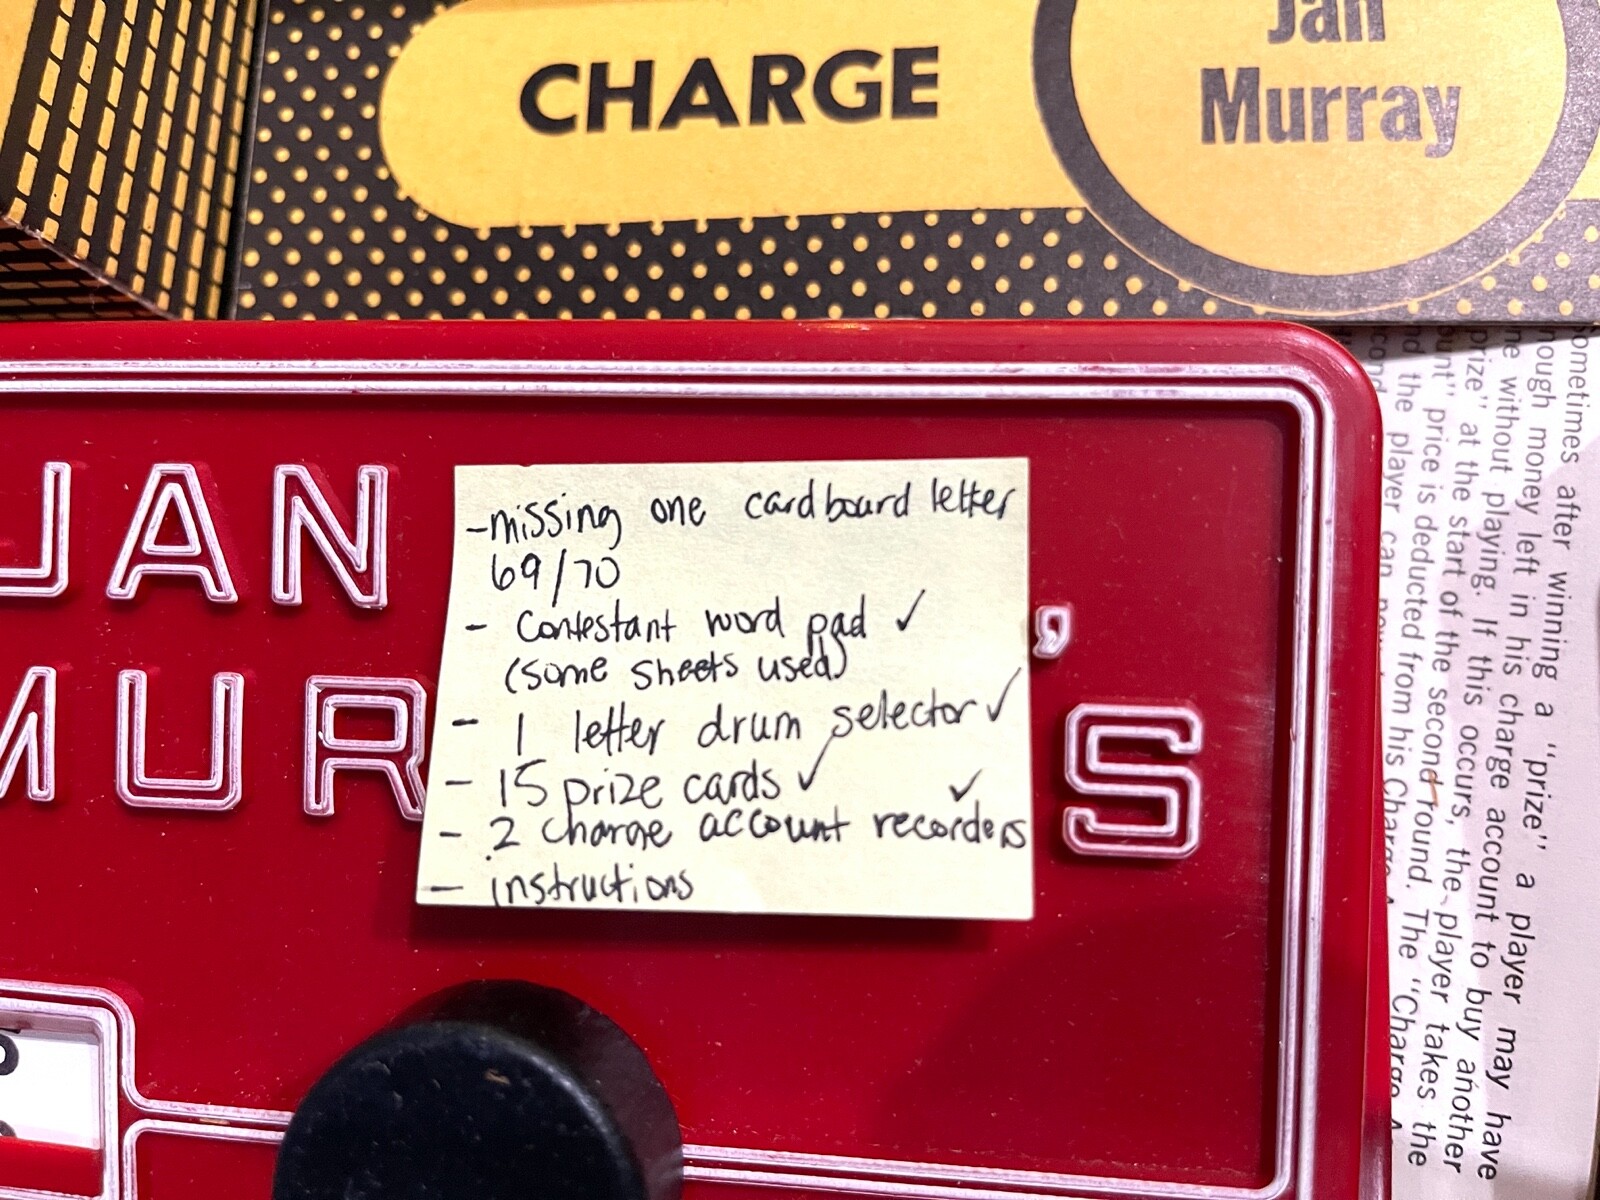 CHARGE
Jan
Murray
JAN
MUR 'S
-missing one cardboard letter
69/70
- contestant word pad ✓
(some sheets used)
- 1 letter drum selector ✓
- 15 prize cards ✓
- 2 charge account recorders ✓
- instructions
sometimes after winning a "prize" a player may have
money left in his charge account to buy another
without playing. If this occurs, the player takes the
prize" at the start of the second round. The "Charge
price is deducted from his Charge
the player can